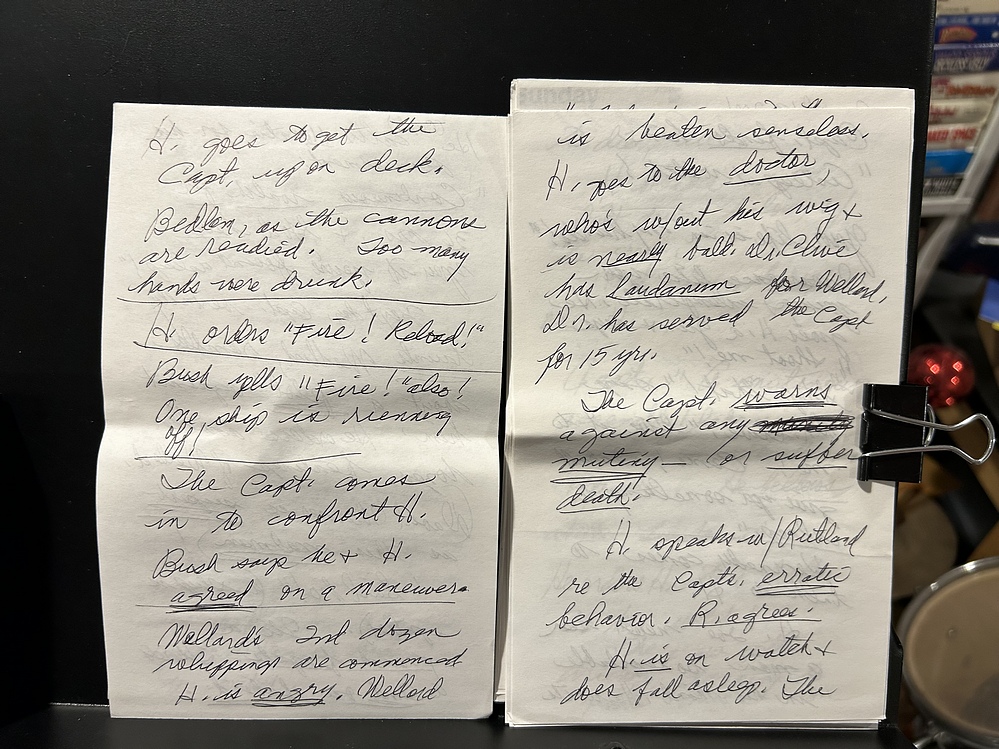 H. goes to get the
Capt. up on deck.
Bedlam, as the cannons
are readied. Too many
hands were drunk.
H. orders "Fire! Reload!"
Bush yells "Fire!" also!
One ship is running
off!
The Capt. comes
in to confront H.
Bush says he & H.
agreed on a maneuver.
Wellard's 2nd dozen
whippings are commenced
H. is angry. Wellard
is beaten senseless.
H. goes to the doctor,
who's w/out his wig &
is nearly bald. Dr. Clive
has Laudanum for Wellard.
Dr. has served the Capt
for 15 yrs.
The Capt. warns
against any
mutiny — or suffer
death.
H. speaks w/Rutland
re the Capt's. erratic
behavior. R. agrees.
H. is on watch &
does fall asleep. The